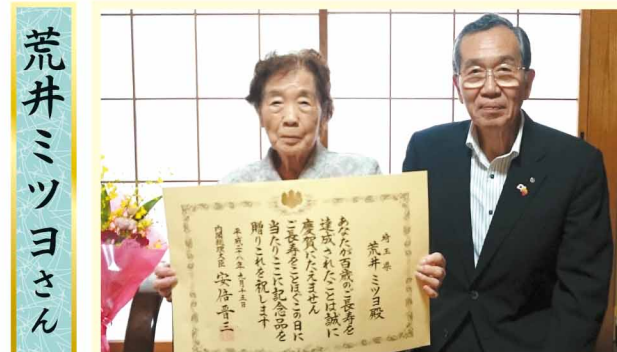 荒井ミツヨさん
埼玉県
荒井ミツヨ殿
あなたが百歳のご長寿を
達成されたことは誠に
慶賀にたえません
ご長寿をことほぐこの日に
当たりここに記念品を
贈りこれを祝します
平成二八年九月十五日
内閣総理大臣 安倍晋三